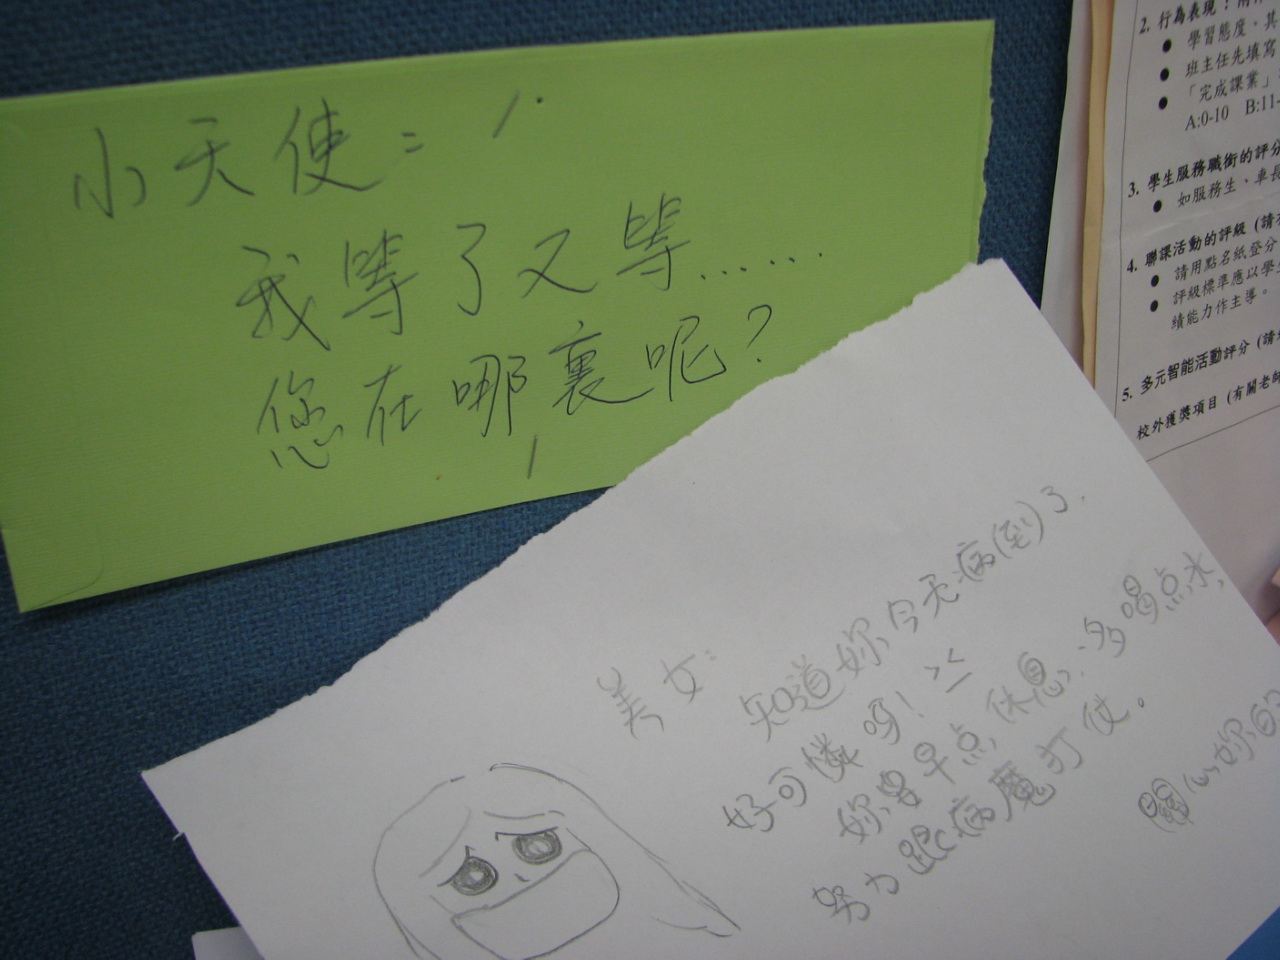 小天使：
我等了又等……
您在哪裏呢？
美女：
知道妳今天病(到)了，
好可憐呀！><
妳要早点休息，多喝点水，
努力跟病魔打仗。
關心妳的
2. 行為表現：
● 學習態度、其
● 班主任先填寫
● 「完成課業」
A:0-10 B:11-
3. 學生服務職銜的評分
● 如服務生、車長
4. 聯課活動的評級 (請
● 請用點名紙登分
● 評級標準應以學生
績能力作主導。
5. 多元智能活動評分 (請
校外獲獎項目 (有關老師